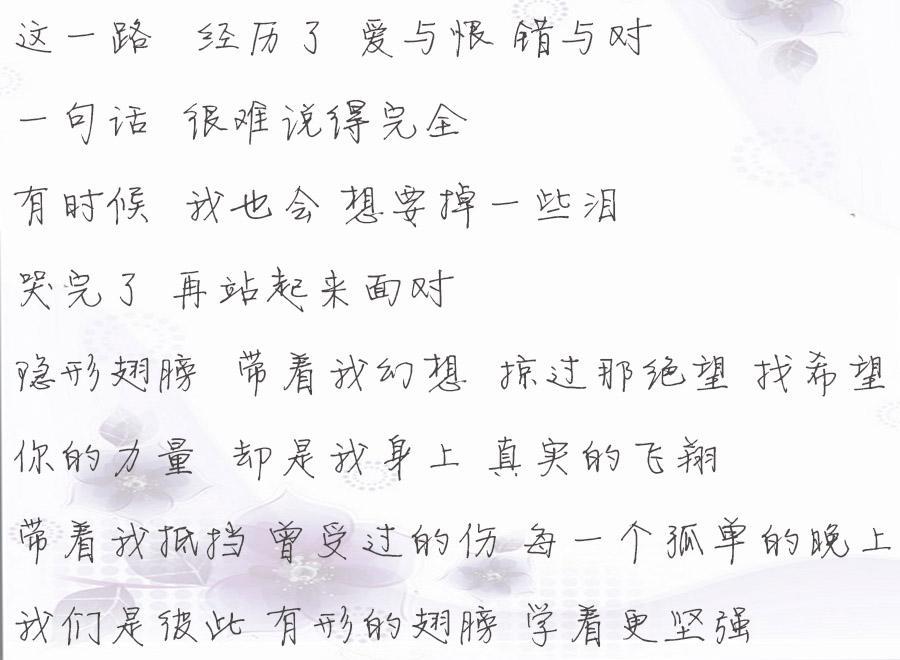 这一路 经历了 爱与恨 错与对
一句话 很难说得完全
有时候 我也会 想要掉一些泪
哭完了 再站起来面对
隐形翅膀 带着我幻想 掠过那绝望 找希望
你的力量 却是我身上 真实的飞翔
带着我抵挡 曾受过的伤 每一个孤单的晚上
我们是彼此 有形的翅膀 学着更坚强